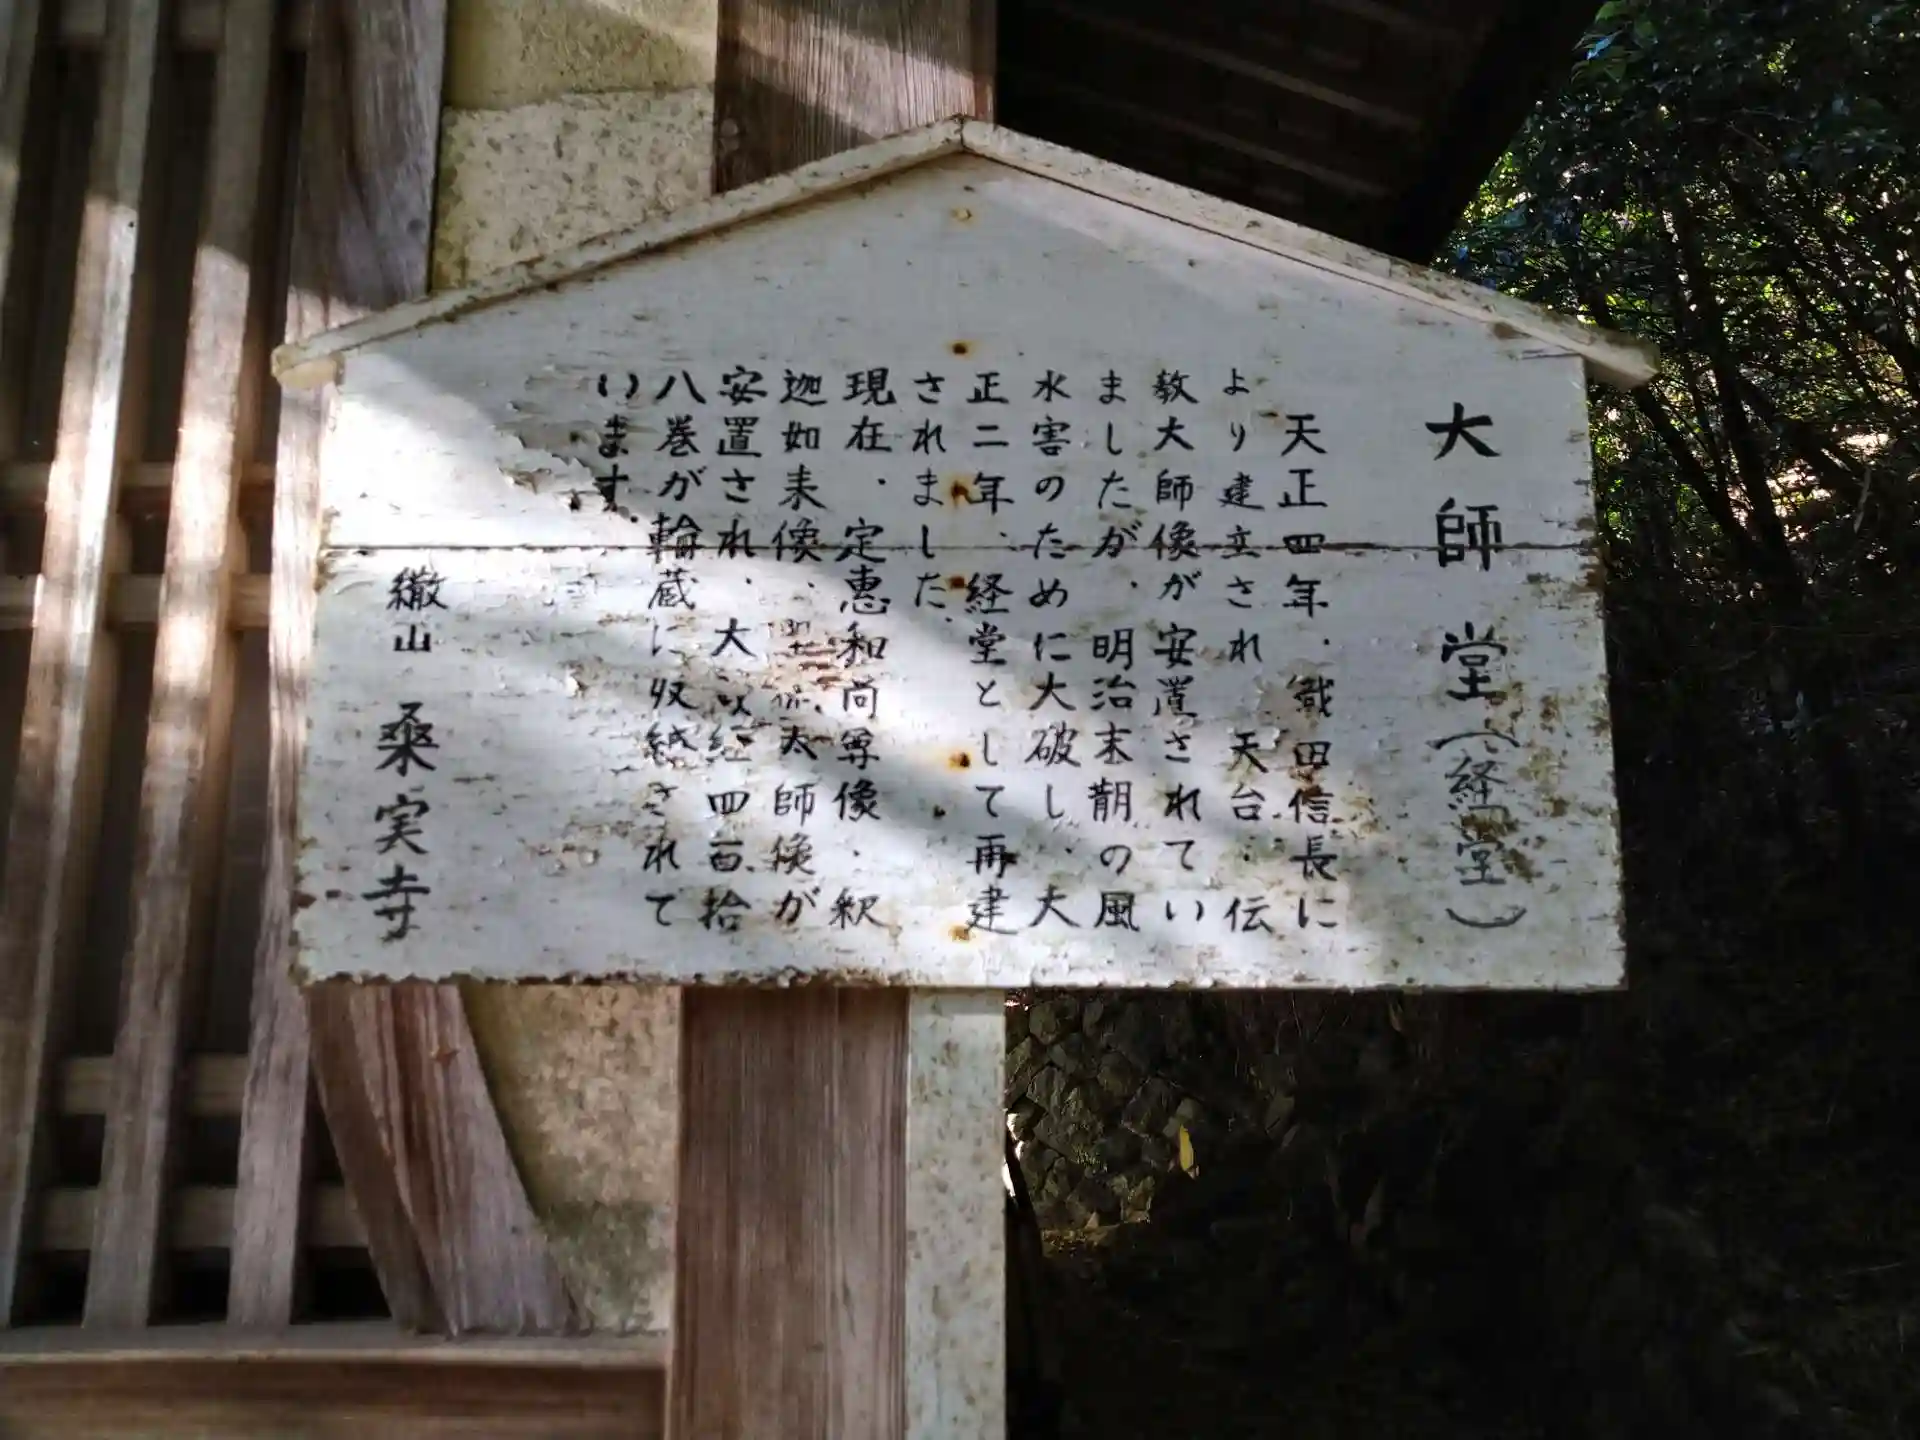 大師堂(経堂)
天正四年、織田信長に
より建立され 天台、伝
教大師像が安置されてい
ましたが、明治末期の風
水害のために大破し、大
正二年、経堂として再建
されました。
現在、定恵和尚尊像、釈
迦如来像、大師像が
安置され、大 経四百拾
八巻が輪蔵に収納されて
います。
繖山 桑実寺